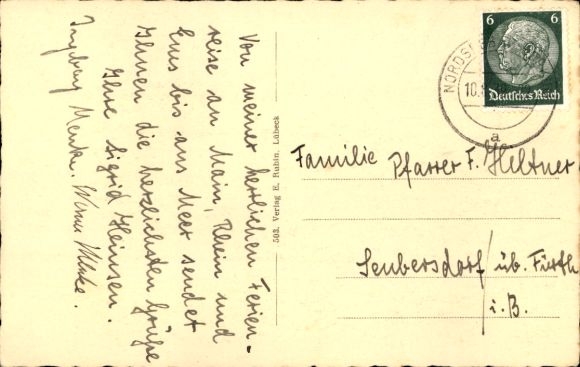 Von meiner herrlichen Ferien-
reise an Main, Rhein und
Ems bis ans Meer sendet
Ihnen die herzlichsten Grüße
Ihre Sigrid Heinsen.
Ingeborg Menke.
503. Verlag E. Rubin, Lübeck
6 6
Deutsches Reich
NORDS
10.
a
Familie Pfarrer F. Heltner
Seubersdorf üb. Fürth
i. B.